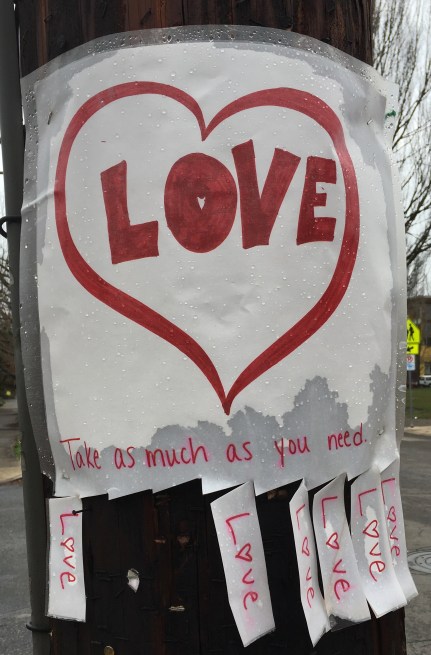 LOVE
Take as much as you need.
Love
Love
Love
Love
Love
Love